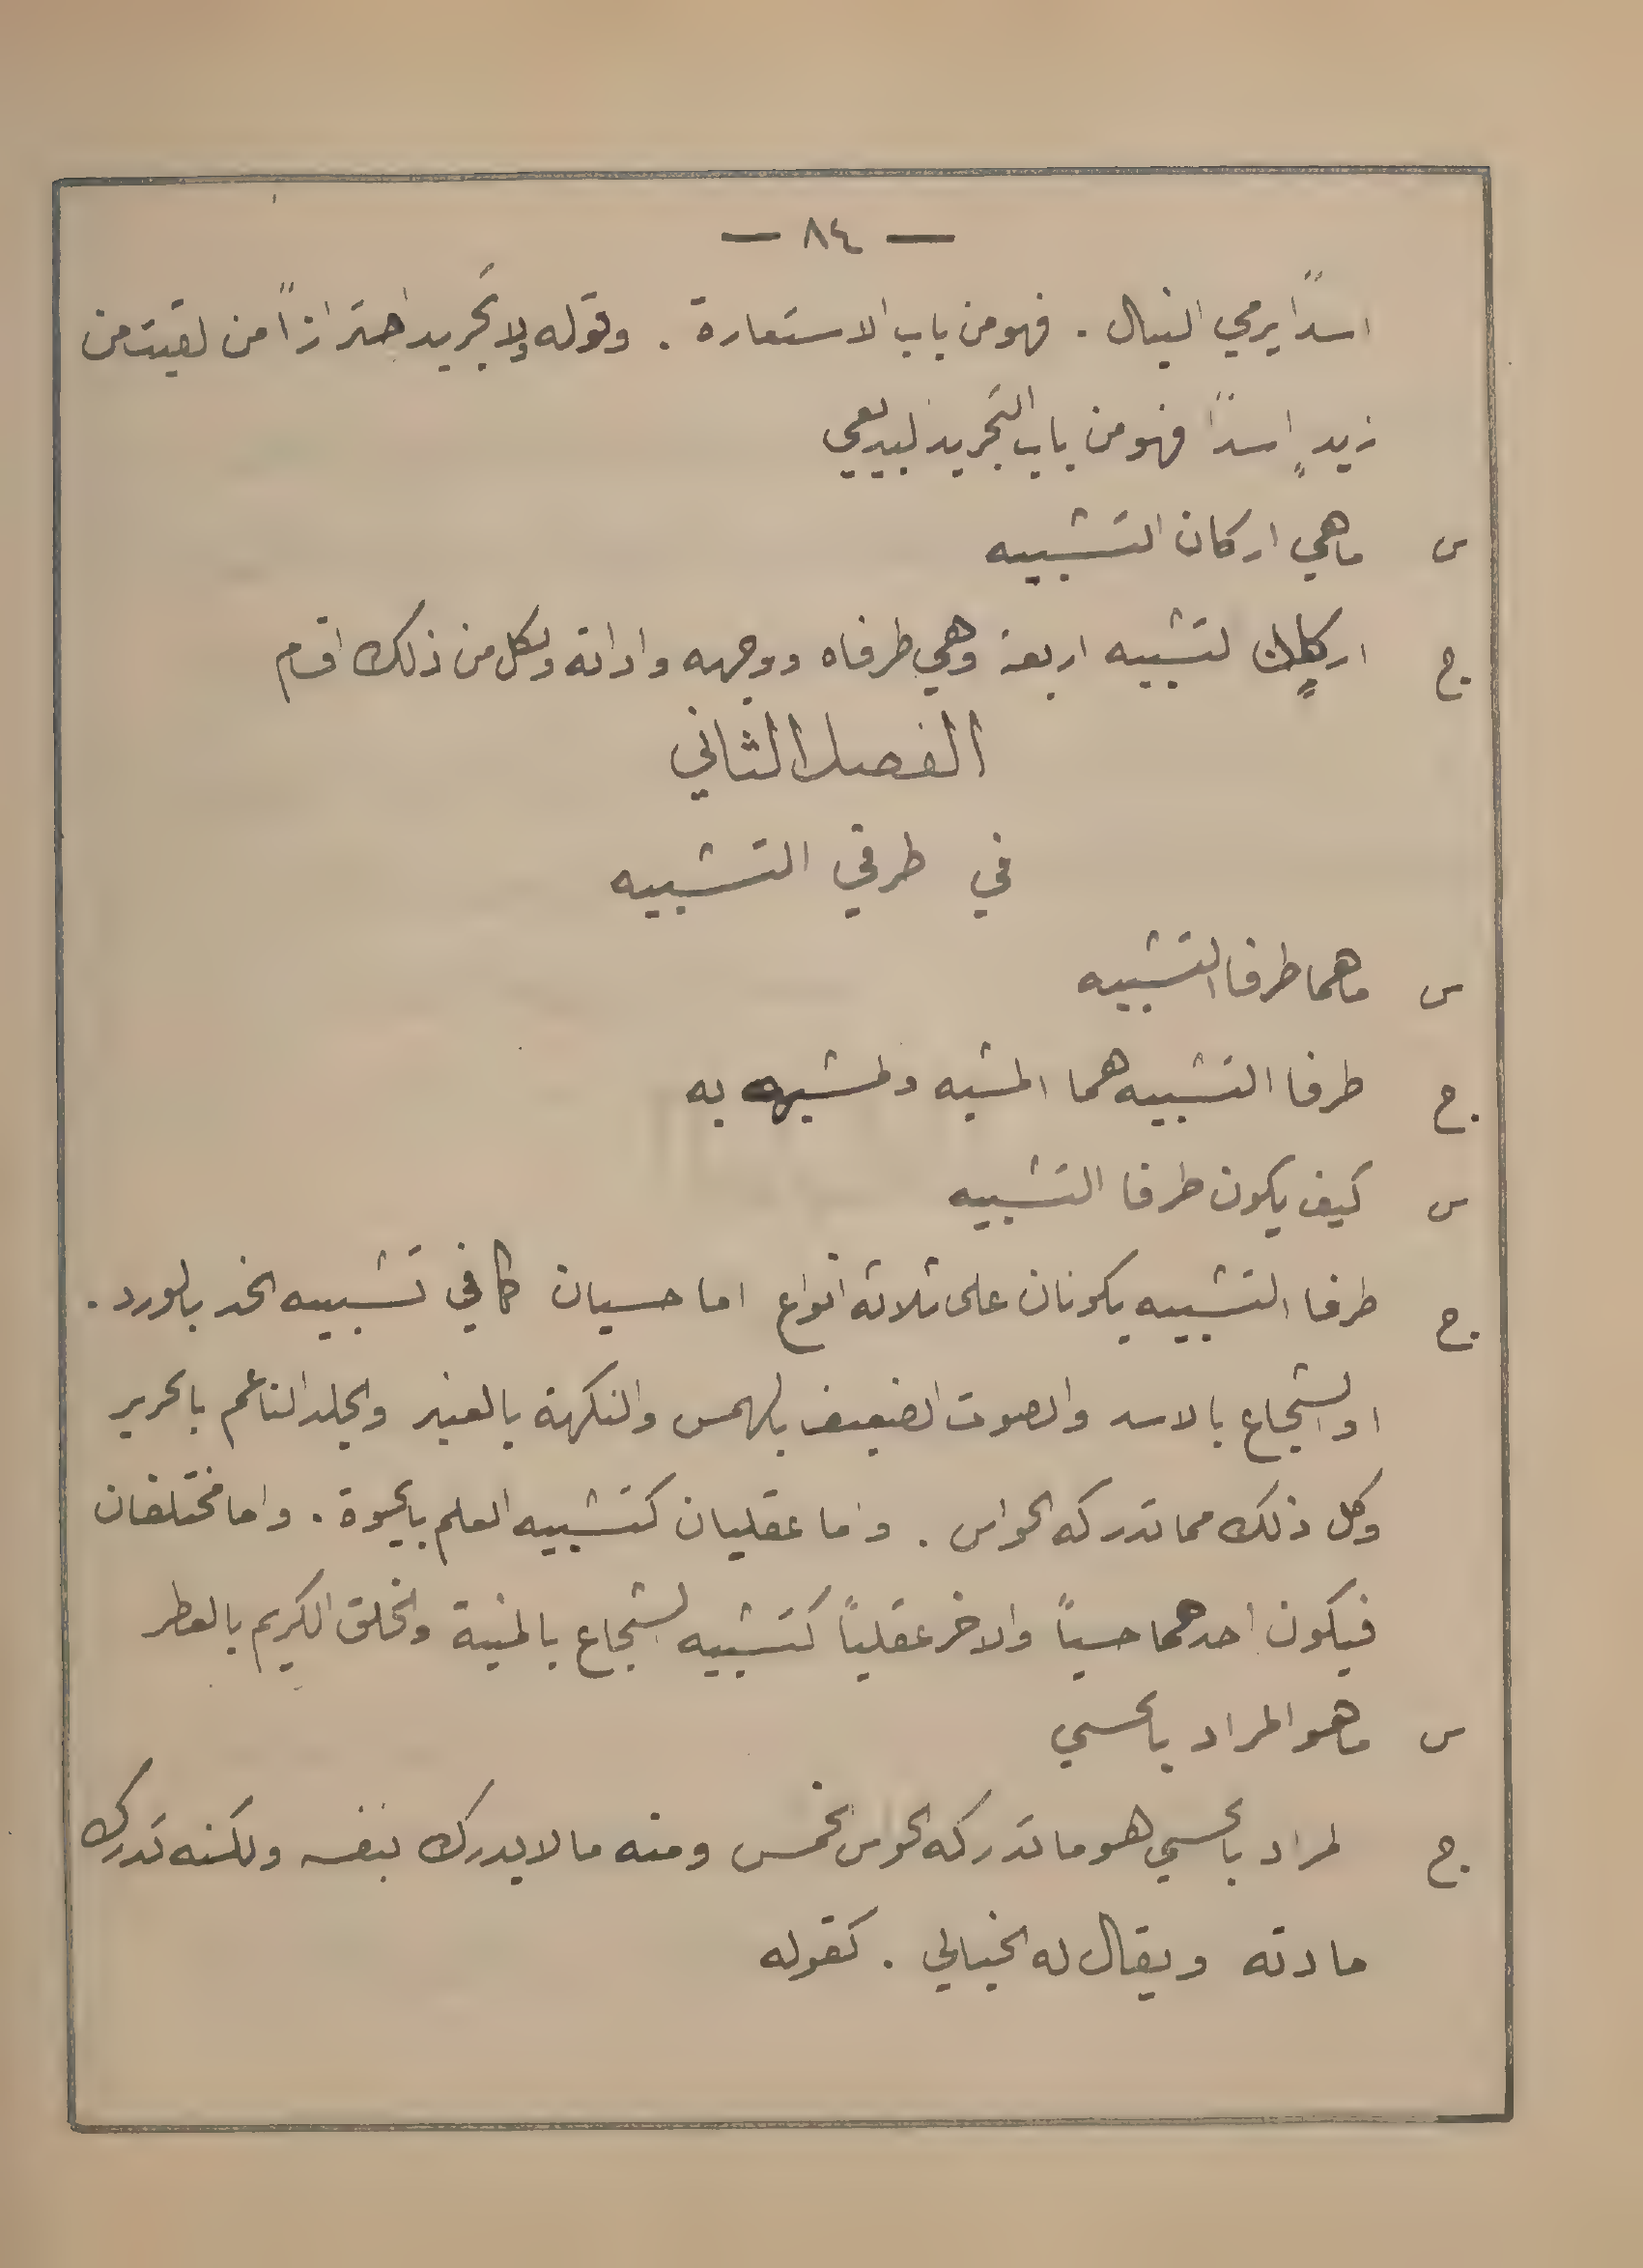 — ٨٤ —
اسدًا يرمي النبال . فهو من باب الاستعارة . وقوله ولا تجريد احترازًا من لقيت من
زيدٍ اسدًا فهو من باب التجريد البديعي
س ما هي اركان التشبيه
ج. اركان التشبيه اربعة وهي طرفاه ووجهه واداته ولكل من ذلك اقسام
الفصل الثاني
في طرفي التشبيه
س ما هما طرفا التشبيه
ج. طرفا التشبيه هما المشبه والمشبه به
س كيف يكون طرفا التشبيه
ج. طرفا التشبيه يكونان على ثلاثة انواع اما حسيان كما في تشبيه الخد بالورد .
او الشجاع بالاسد والصوت الضعيف بالهمس والنكهة بالعنبر والجلد الناعم بالحرير
وكل ذلك مما تدركه الحواس . واما عقليان كتشبيه العلم بالحيوة . واما مختلفان
فيكون احدهما حسياً والاخر عقلياً كتشبيه الشجاع بالمنية والخلق الكريم بالعطر
س ما هو المراد بالحسي
ج. المراد بالحسي هو ما تدركه الحواس الخمس ومنه ما لا يدرك بنفسه ولكنه تدرك
مادته ويقال له الخيالي . كقوله